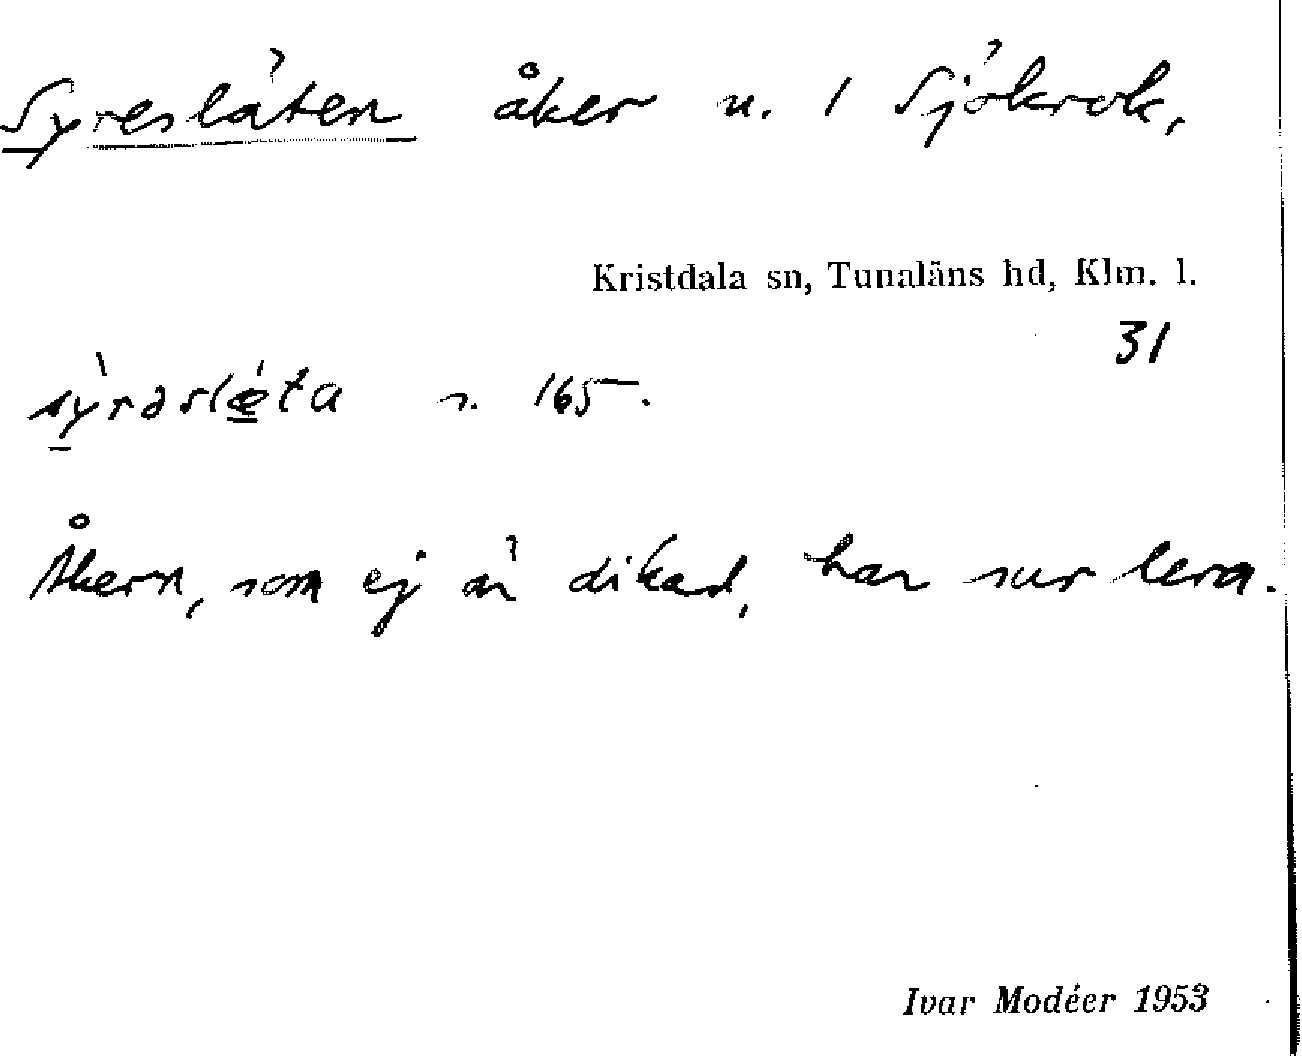 Syresläten åker u. 1 Sjökrok,
Kristdala sn, Tunaläns hd, Klm. l.
31
sỳ̱rəslǽ̱ta s. 165.
Åkern, som ej är dikad, har sur lera.
Ivar Modéer 1953